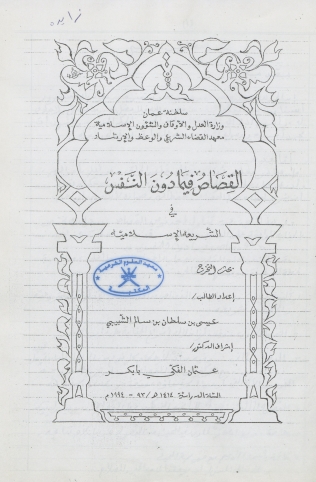 سلطنة عمان
وزارة العدل والأوقاف والشؤون الإسلامية
معهد القضاء الشرعي والوعظ والإرشاد
القصاص فيما دون النفس
في
الشريعة الإسلامية
بحث التخرج
معهد العلوم الشرعية
المكتبة
إعداد الطالب /
عيسى بن سلطان بن سالم الشبيبي
إشراف الدكتور /
عثمان الفكي بابكر
السنة الدراسية ١٤١٤ هـ / ٩٣ - ١٩٩٤ م